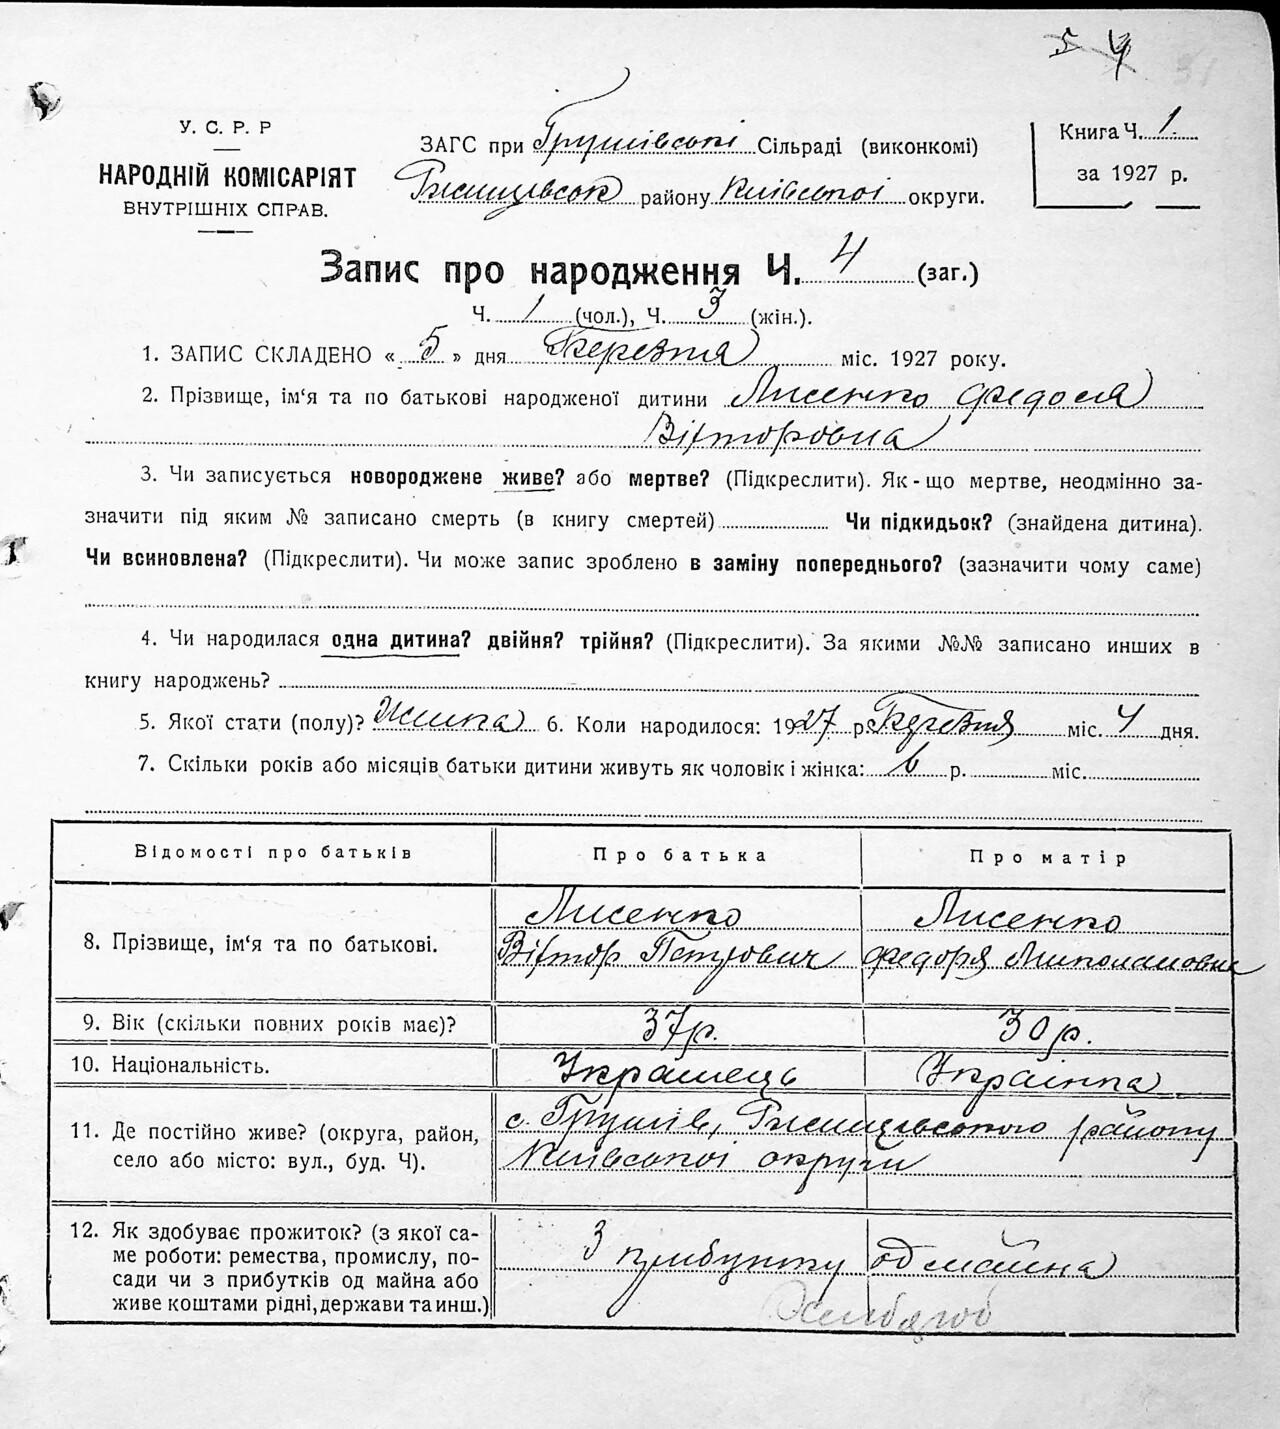 5 4 31
У. С. Р. Р
НАРОДНІЙ КОМІСАРІЯТ
ВНУТРІШНІХ СПРАВ.
ЗАГС при Грушівські Сільраді (виконкомі)
Ржищівськ району Київської округи.
Книга Ч. 1.
за 1927 р.
Запис про народження Ч. 4 (заг.)
Ч. 1 (чол.), Ч. 3 (жін.).
1. ЗАПИС СКЛАДЕНО « 5 » дня Березня міс. 1927 року.
2. Прізвище, ім‘я та по батькові народженої дитини Лисенко Федося
Вікторовна
3. Чи записується новороджене живе? або мертве? (Підкреслити). Як-що мертве, неодмінно за-
значити під яким № записано смерть (в книгу смертей) Чи підкидьок? (знайдена дитина).
Чи всиновлена? (Підкреслити). Чи може запис зроблено в заміну попереднього? (зазначити чому саме)
4. Чи народилася одна дитина? двійня? трійня? (Підкреслити). За якими №№ записано инших в
книгу народжень?
5. Якої стати (полу)? Жінка 6. Коли народилося: 1927 р. Березня міс. 4 дня.
7. Скільки років або місяців батьки дитини живуть як чоловік і жінка: 6 р. міс.
Відомості про батьків Про батька Про матір
8. Прізвище, ім‘я та по батькові.
Лисенко
Віктор Петрович
Лисенко
Федора Миколаївна
9. Вік (скільки повних років має)? 37р. 30р.
10. Національність. Українець Українка
11. Де постійно живе? (округа, район,
село або місто: вул., буд. Ч).
с. Грушів, Ржищівського району
Київської округи
12. Як здобуває прожиток? (з якої са-
ме роботи: ремества, промислу, по-
сади чи з прибутків од майна або
живе коштами рідні, держави та инш.)
З прибутку од майна
Хлібороб